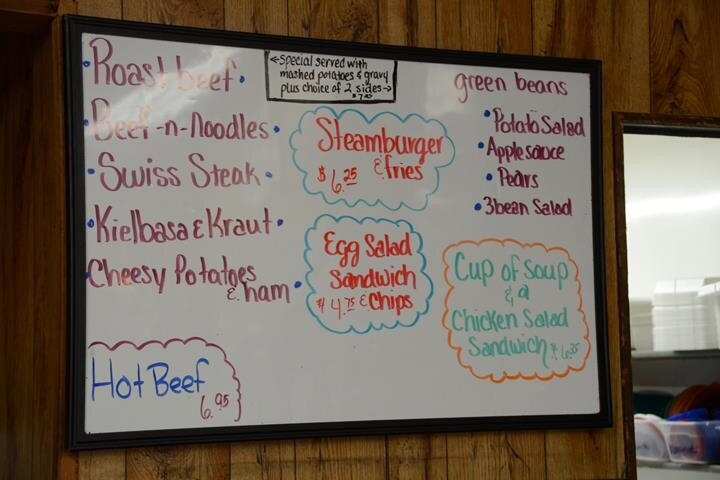 •Roast beef•
•Beef-n-Noodles•
•Swiss Steak•
•Kielbasa & Kraut•
Cheesy Potatoes
& ham•
Hot Beef
6.95
←Special served with
mashed potatoes & gravy
plus choice of 2 sides→
Steamburger
$6.25 & fries
Egg Salad
Sandwich
$4.75 & Chips
green beans
•Potato Salad
•Applesauce
•Pears
•3bean Salad
Cup of Soup
& a
Chicken Salad
Sandwich $6.35